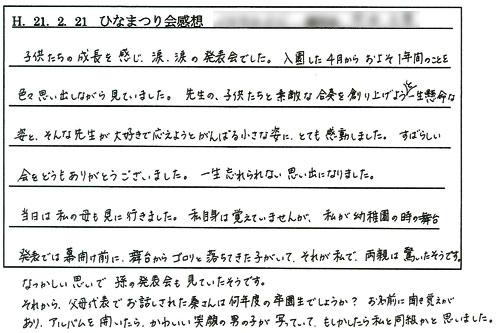 H. 21. 2. 21 ひなまつり会感想
子供たちの成長を感じ、涙、涙の発表会でした。入園した4月からおよそ1年間のことを
色々思い出しながら見ていました。先生の、子供たちと素敵な合奏を創り上げようと一生懸命な
姿と、そんな先生が大好きで応えようとがんばる小さな姿に、とても感動しました。すばらしい
会をどうもありがとうございました。一生忘れられない思い出になりました。
当日は私の母も見に行きました。私自身は覚えていませんが、私が幼稚園の時の舞台
発表では幕開け前に、舞台からゴロリと落ちてきた子がいて、それが私で、両親は驚いたそうです。
なつかしい思いで孫の発表会も見ていたそうです。
それから、父母代表でお話しされた奏さんは何年度の卒園生でしょうか? お名前に聞き覚えが
あり、アルバムを開いたら、かわいい笑顔の男の子が写っていて、もしかしたら私と同級かと思いました。